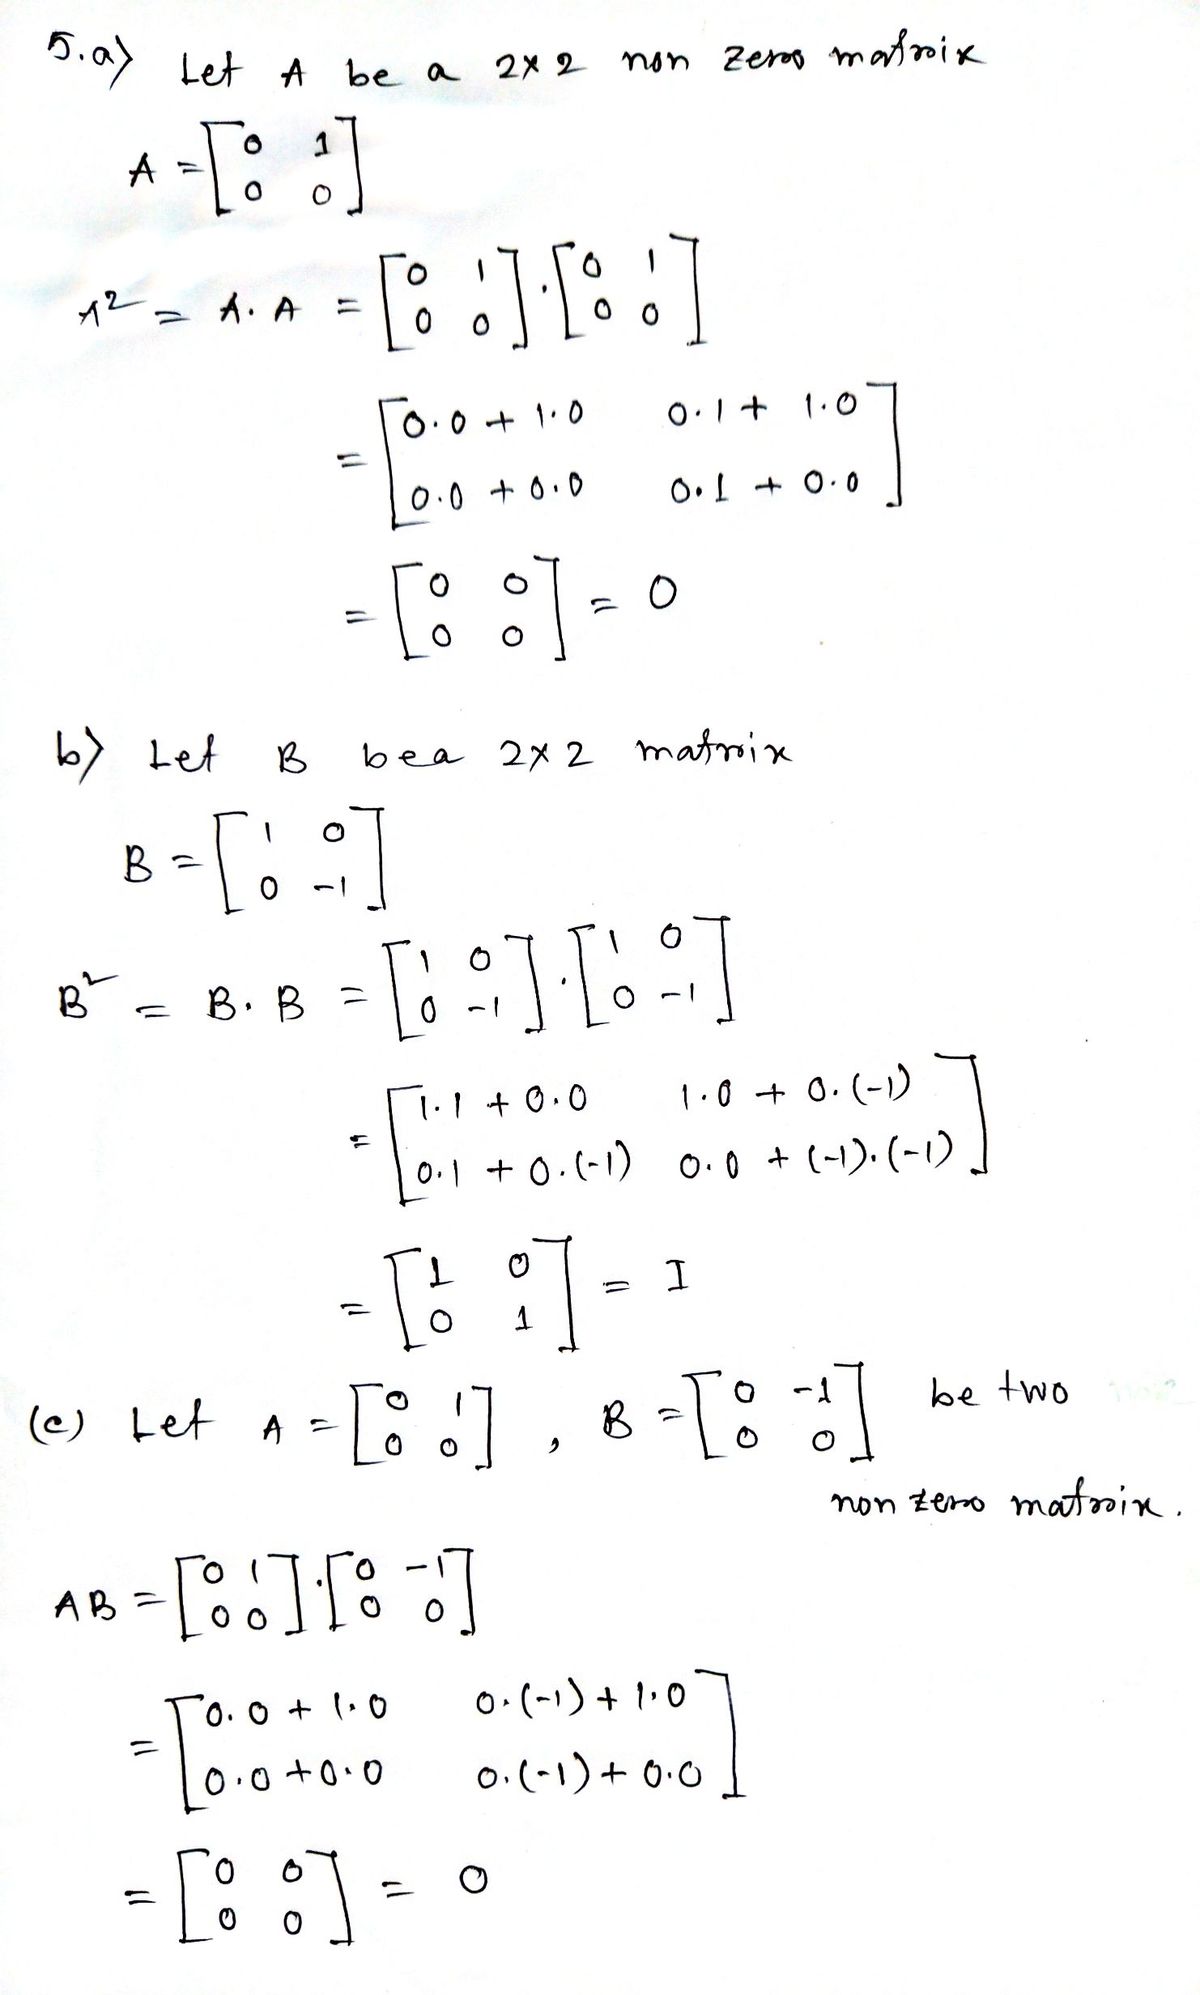 5.a) Let A be a 2x2 non zero matrix
A = [0 1
0 0]
A² = A.A = [0 1
0 0] . [0 1
0 0]
= [0.0 + 1.0   0.1 + 1.0
0.0 + 0.0   0.1 + 0.0]
= [0 0
0 0] = 0
b) Let B be a 2x2 matrix
B = [1 0
0 -1]
B² = B.B = [1 0
0 -1] . [1 0
0 -1]
= [1.1 + 0.0   1.0 + 0.(-1)
0.1 + 0.(-1)   0.0 + (-1).(-1)]
= [1 0
0 1] = I
(c) Let A = [0 1
0 0] , B = [0 -1
0 0] be two
non zero matrix.
AB = [0 1
0 0] . [0 -1
0 0]
= [0.0 + 1.0   0.(-1) + 1.0
0.0 + 0.0   0.(-1) + 0.0]
= [0 0
0 0] = 0